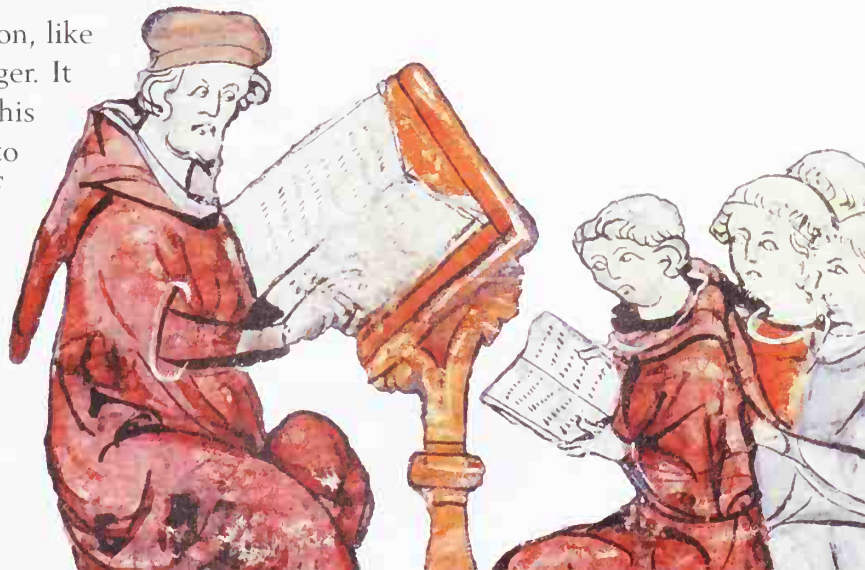 on, like
ger. It
his
to
r